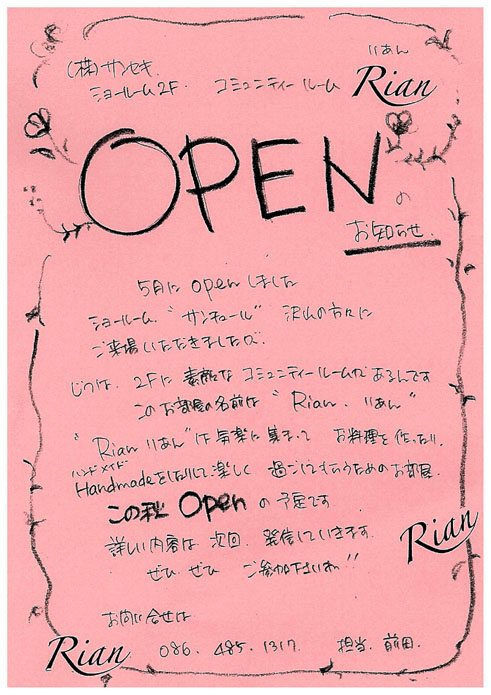 (株)サンセキ
りあん
ショールーム2F. コミュニティールーム Rian
OPEN の
お知らせ.
5月に Openしました
ショールーム "サンキュール" 沢山の方々に
ご来場いただきましたが.
じつは. 2Fに 素敵な コミュニティールームが あるんです
このお部屋の名前は "Rian. りあん"
"Rian りあん"は 気楽に集まって お料理を作ったり.
ハンドメイド
Handmadeをしたりして楽しく 過ごしてもらうためのお部屋.
この秋 Open の予定です
詳しい内容は 次回. 発信していきます.
ぜひ ぜひ ご参加下さいね!!
Rian
お問い合せは
Rian 086. 485. 1317. 担当. 前田.